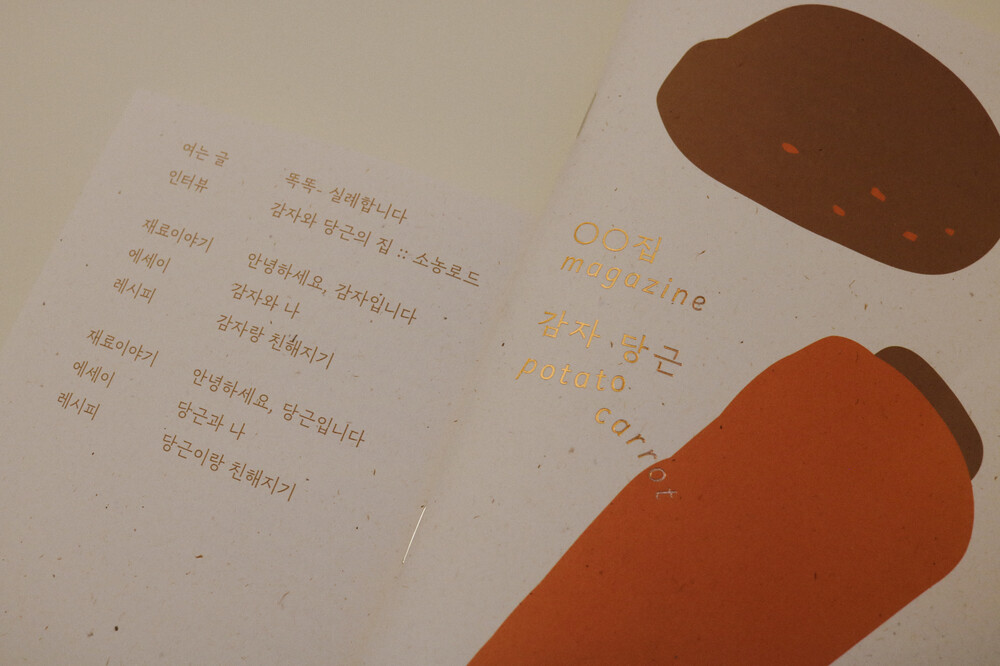 여는 글 똑똑- 실례합니다
인터뷰 감자와 당근의 집 :: 소농로드
재료이야기 안녕하세요, 감자입니다
에세이 감자와 나
레시피 감자랑 친해지기
재료이야기 안녕하세요, 당근입니다
에세이 당근과 나
레시피 당근이랑 친해지기
○○집
magazine
감자, 당근
potato
carrot